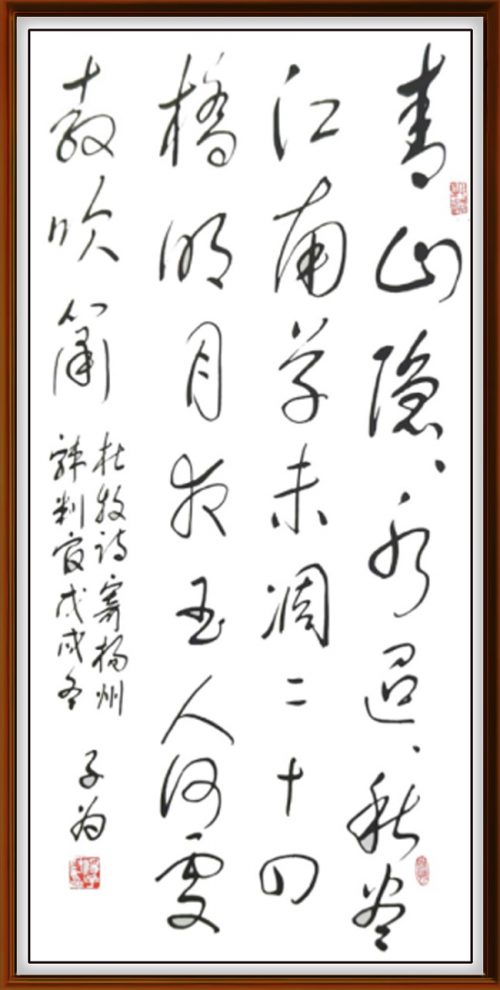 青山隐、水迢、秋尽
江南草未凋二十四
橋明月夜玉人何處
教吹簫
杜牧诗寄扬州
韩判官戊戌冬
子为